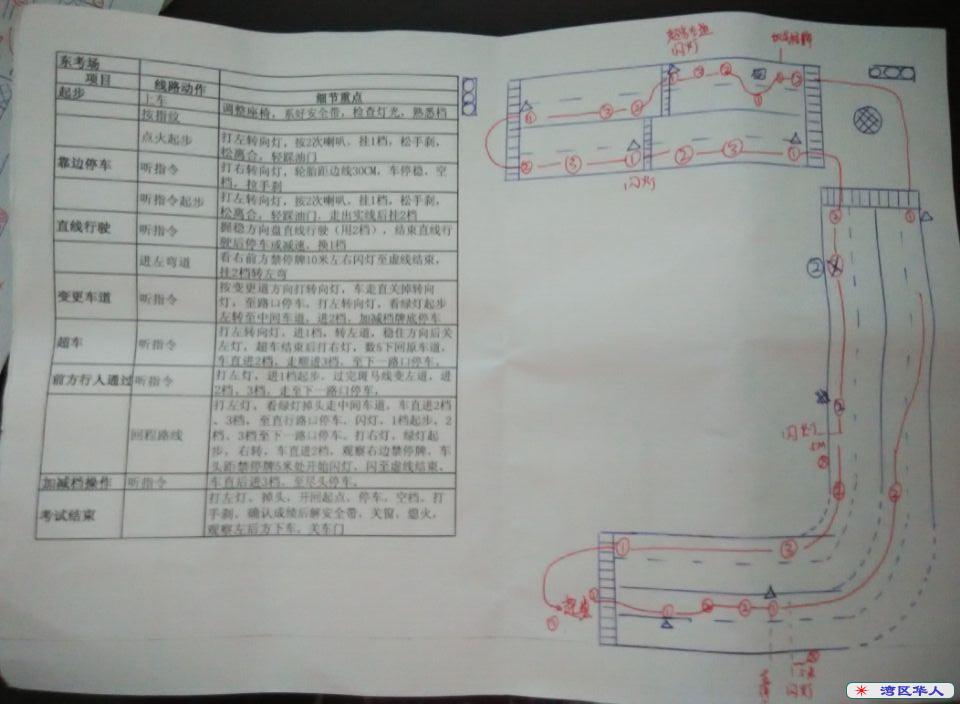 东考场
项目 线路动作 细节重点
起步 上车 调整座椅，系好安全带，检查灯光，熟悉档
按指纹
点火起步 打左转向灯，按2次喇叭，挂1档，松手刹，
松离合，轻踩油门
靠边停车 听指令 打右转向灯，轮胎距边线30CM，车停稳，空
档，拉手刹
听指令起步 打左转向灯，按2次喇叭，挂1档，松手刹，
松离合，轻踩油门，走出实线后挂2档
直线行驶 听指令 握稳方向盘直线行驶（用2档），结束直线行
驶后停车或减速，换1档
进左弯道 看右前方禁停牌10米左右闪灯至虚线结束，
挂2档转左弯
变更车道 听指令 按变更道方向打转向灯，车走直关掉转向
灯，至路口停车，打左转向灯，看绿灯起步
左转至中间车道，进2档，加减档牌底停车
超车 听指令 打左转向灯，进1档，转左道，稳住方向后关
左灯，超车结束后打右灯，数5下回原车道，
车直进2档，走顺进3档，至下一路口停车，
前方行人通过 听指令 打左灯，进1档起步，过完斑马线变左道，进
2档，3档，走至下一路口停车，
回程路线 打左灯，看绿灯掉头走中间车道，车直进2档
，3档，至直行路口停车，闪灯，1档起步，2
档，3档至下一路口停车。打右灯，绿灯起
步，右转，车直进2档，观察右边禁停牌，车
头距禁停牌5米处开始闪灯，闪至虚线结束，
加减档操作 听指令 车直后进3档，至尽头停车，
考试结束 打左灯，掉头，开回起点，停车，空档，打
手刹，确认成绩后解安全带，关窗，熄火，
观察左后方下车，关车门
闪灯
① ③ ② ② ① ②
② ③ ① ② ③ ①
闪灯
②
闪灯
5M
① ③
① ② ② ①
闪灯
湾区华人